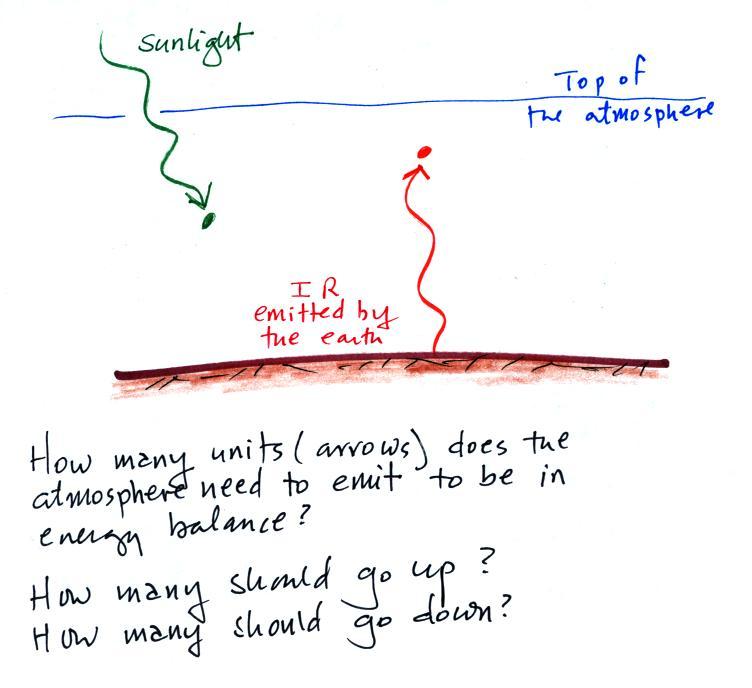 sunlight
Top of
the atmosphere
IR
emitted by
the earth
How many units (arrows) does the
atmosphere need to emit to be in
energy balance?
How many should go up?
How many should go down?